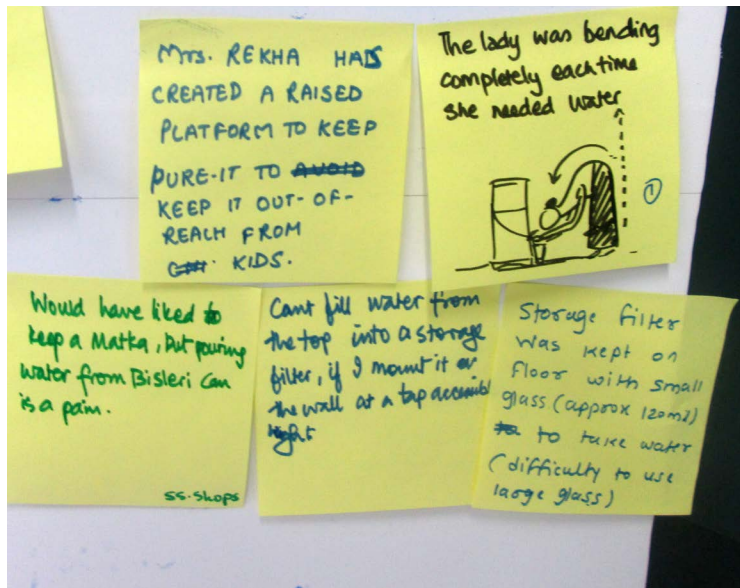 Mrs. REKHA HAS
CREATED A RAISED
PLATFORM TO KEEP
PURE-IT TO AVOID
KEEP IT OUT-OF-
REACH FROM
KIDS.
The lady was bending
completely each time
she needed water
1
Would have liked to
keep a Matka, but pouring
water from Bisleri Can
is a pain.
SS. Shops
Cant fill water from
the top into a storage
filter, if I mount it on
the wall at a tap accessibl
hight
Storage filter
was kept on
floor with small
glass (approx 120ml)
to take water
(difficulty to use
large glass)